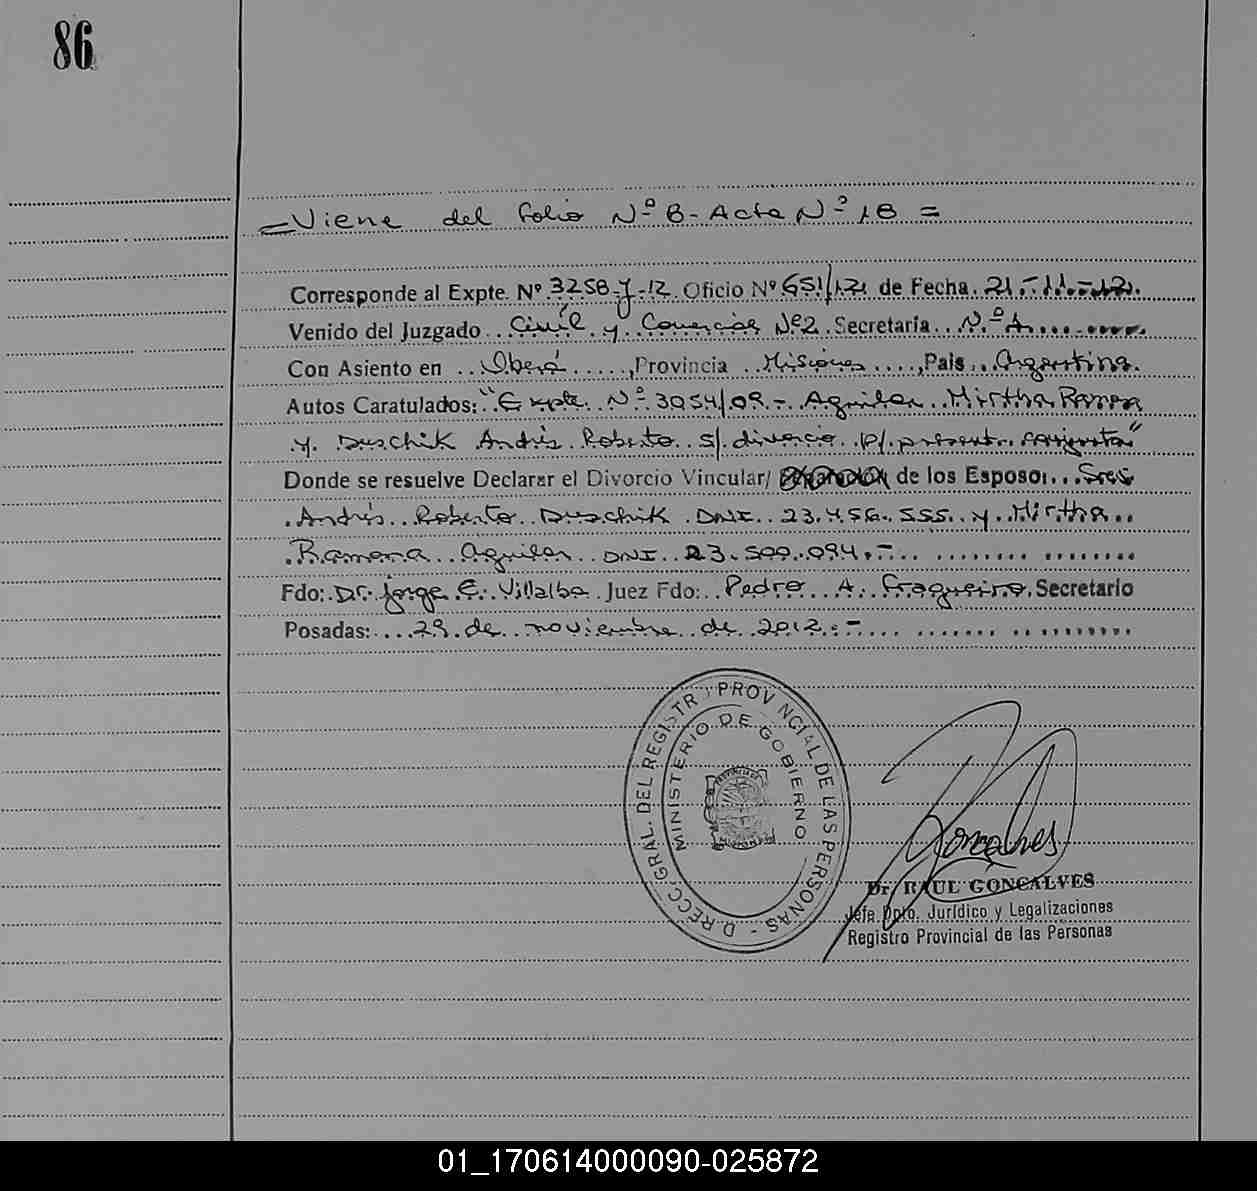 86
= Viene del folio Nº 8 - Acta Nº 18 =
Corresponde al Expte. Nº 3258-Y-12 Oficio Nº 651/12 de Fecha 21-11-12.
Venido del Juzgado Civil y Comercial Nº2 Secretaría Nº
Con Asiento en Oberá, Provincia Misiones, Pais Argentina.
Autos Caratulados: "Expte Nº 3054/09.- Aguilar Mirtha Ramona
y Duschik Andrés Roberto s/ divorcio p/ present. conjunta"
Donde se resuelve Declarar el Divorcio Vincular/ de los Esposo: Sres
Andrés Roberto Duschik DNI 23.456.555 y Mirtha
Ramona Aguilar DNI 23.500.094.-
Fdo: Dr. Jorge E. Villalba Juez Fdo: Pedro A. Fragueiro Secretario
Posadas: 29 de noviembre de 2012.-
DIRECC. GRAL. DEL REGISTRO PROVINCIAL DE LAS PERSONAS -
MINISTERIO DE GOBIERNO
Goncalves
Dr. RAUL GONCALVES
Jefe Dpto. Jurídico y Legalizaciones
Registro Provincial de las Personas
01_170614000090-025872